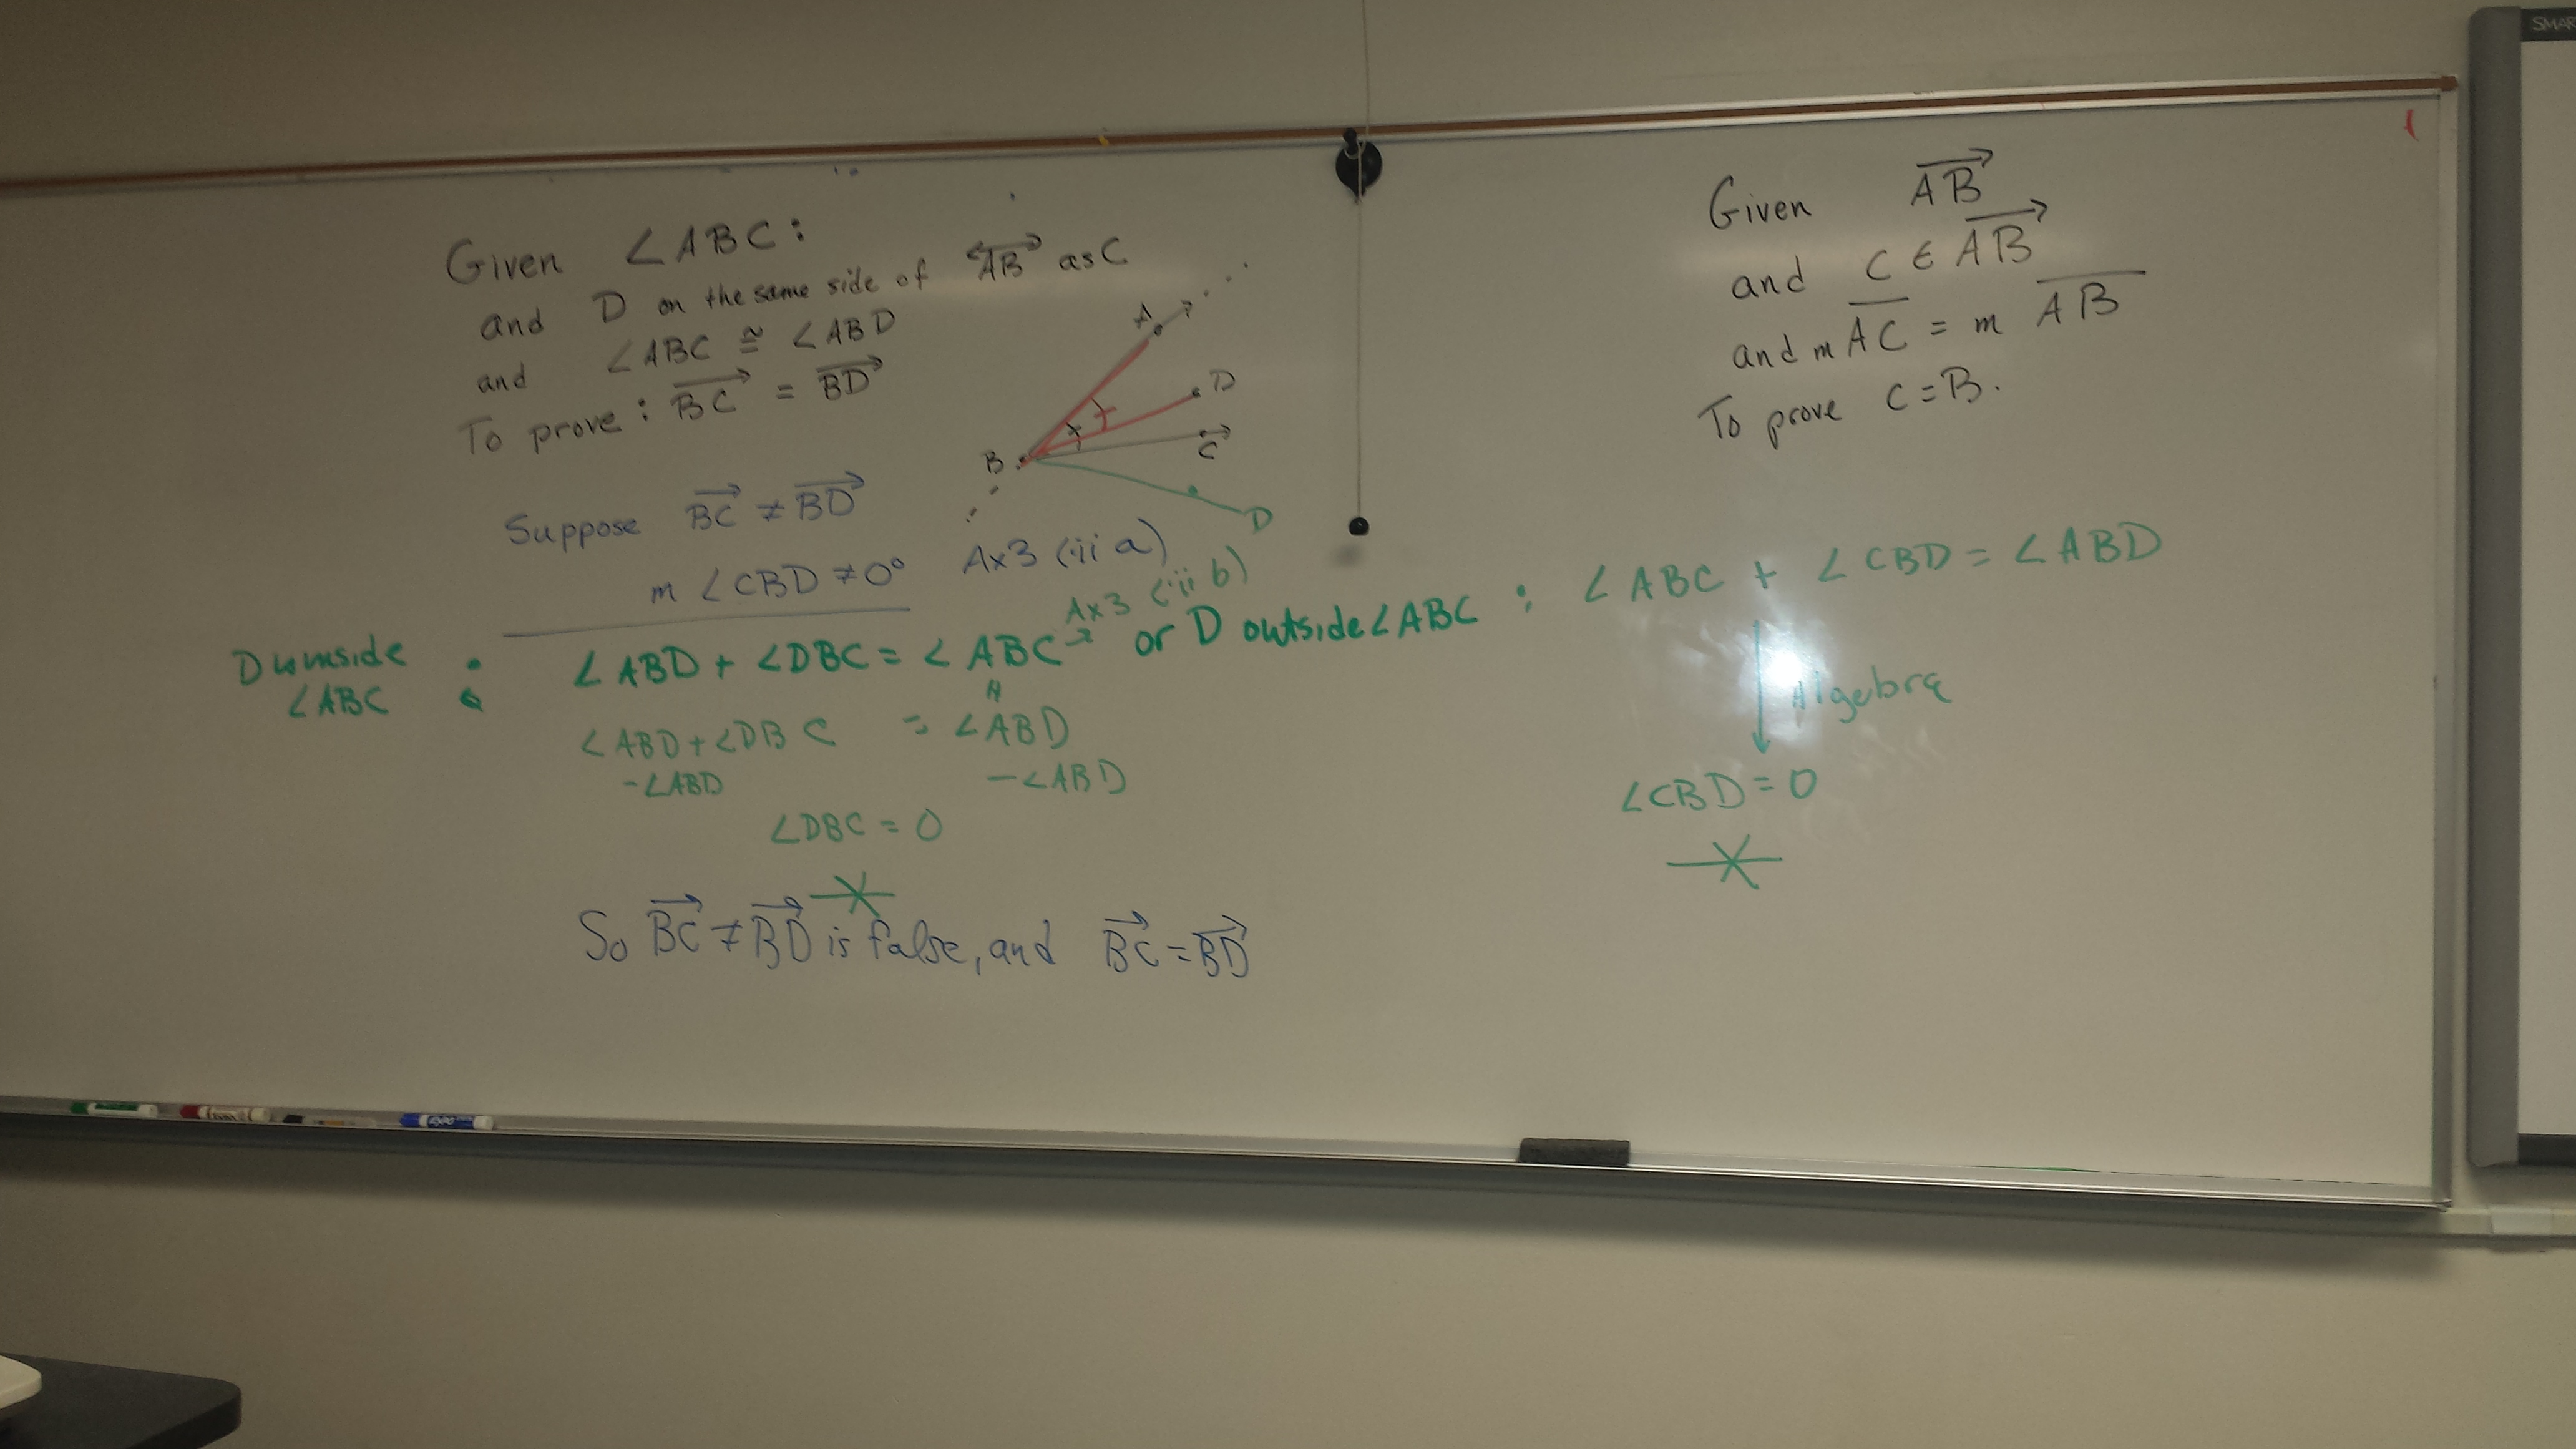 SMAR
Given ∠ABC:
and D on the same side of AB as C
and ∠ABC ≅ ∠ABD
To prove: BC = BD
A
D
C
B
D
Suppose BC ≠ BD
m ∠CBD ≠ 0° Ax3 (ii a)
Ax3 (ii b)
D inside ∠ABC : ∠ABD + ∠DBC = ∠ABC or D outside ∠ABC : ∠ABC + ∠CBD = ∠ABD
∠ABD + ∠DBC = ∠ABD
-∠ABD -∠ABD
∠DBC = 0
So BC ≠ BD is false, and BC = BD
Given AB
and C ∈ AB
and m AC = m AB
To prove C = B.
Algebra
∠CBD = 0
EXPO